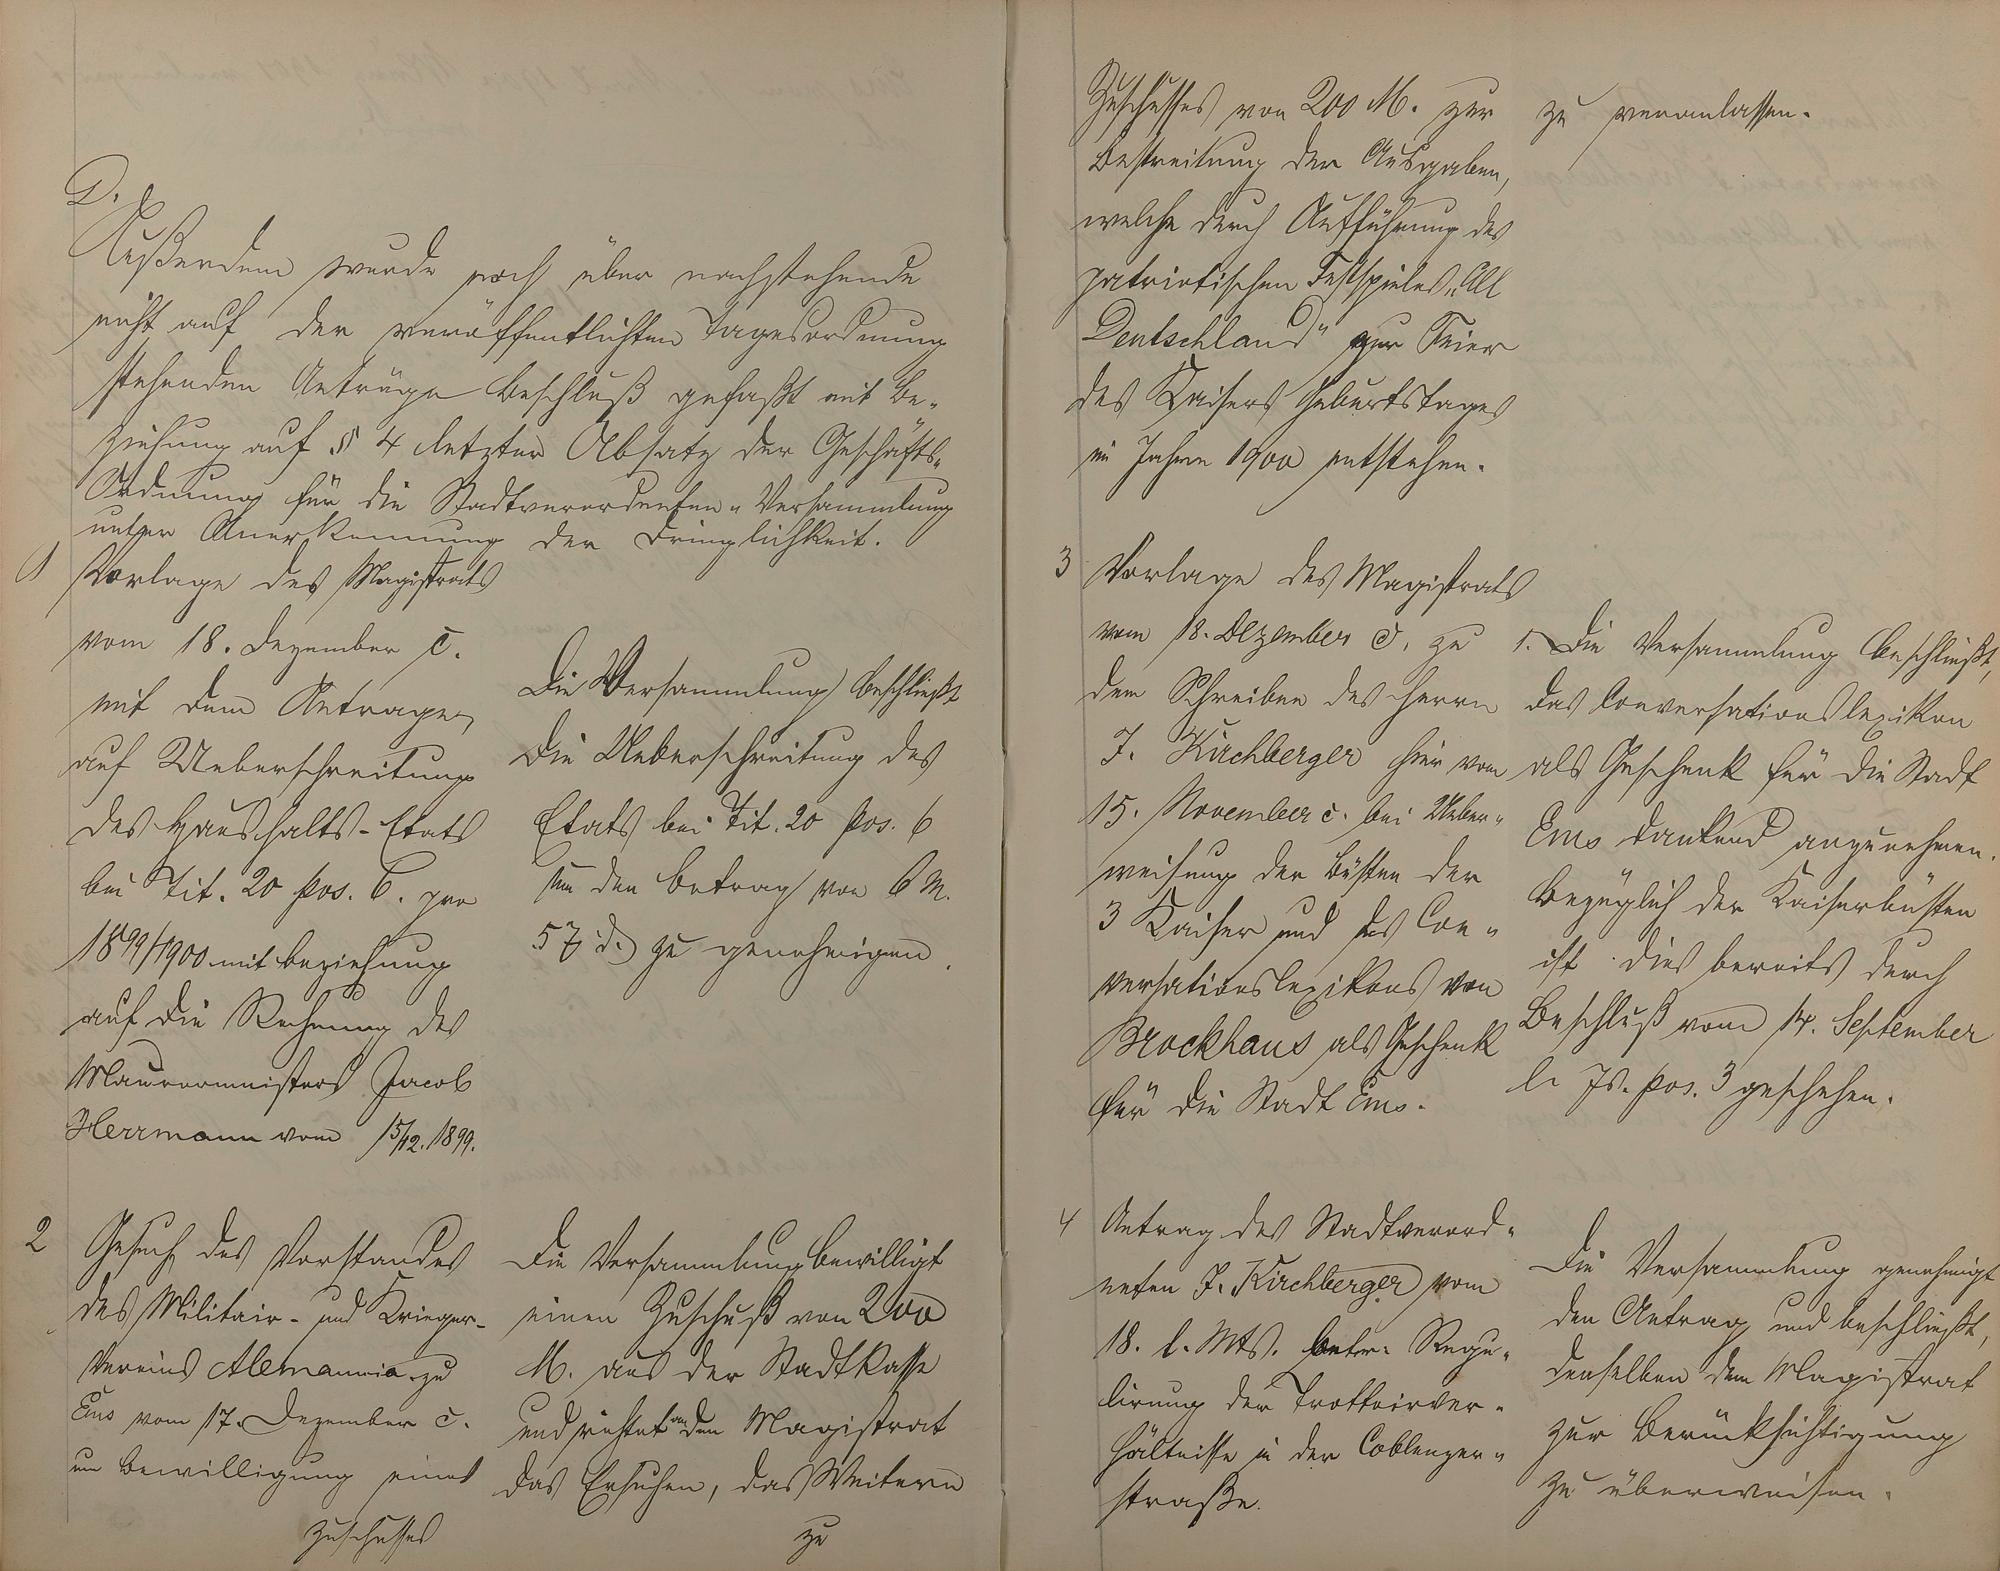 D.
Außerdem wurde noch über nachstehende
nicht auf der veröffentlichten Tagesordnung
stehenden Anträge Beschluß gefaßt mit Be-
ziehung auf § 4 letzter Absatz der Geschäfts-
Ordnung für die Stadtverordneten-Versammlung
unter Anerkennung der Dringlichkeit.
1
Vorlage des Magistrats
vom 18. Dezember c.
mit dem Antrage,
auf Ueberschreitung
des Haushalts-Etats
bei Tit. 20 pos. 6. pro
1899/1900 mit Beziehung
auf die Rechnung des
Maurermeisters Jacob
Herrmann vom 15/12. 1899.
Die Versammlung beschließt
die Ueberschreitung des
Etats bei Tit. 20 pos. 6
um den Betrag von 6 M.
57 d. zu genehmigen.
2
Gesuch des Vorstandes
des Militair- und Krieger-
Vereins Alemannia zu
Ems vom 17. Dezember c.
um Bewilligung eines
Zuschusses
Die Versammlung bewilligt
einen Zuschuß von 200
M. aus der Stadtkasse
und richtet an den Magistrat
das Ersuchen, das Weitere
zu
Zuschusses von 200 M. zur
Bestreitung der Ausgaben,
welche durch Aufführung des
patriotischen Festspieles "All
Deutschland" zur Feier
des Kaisers Geburtstages
im Jahre 1900 entstehen.
zu veranlassen.
3
Vorlage des Magistrats
vom 18. Dezember c. zu
dem Schreiben des Herrn
J. Kirchberger hier vom
15. November c. bei Ueber-
weisung der Büsten der
3 Kaiser und des Con-
versationslexikons von
Brockhaus als Geschenk
für die Stadt Ems.
1. Die Versammlung beschließt,
das Conversationslexikon
als Geschenk für die Stadt
Ems dankend anzunehmen.
Bezüglich der Kaiserbüsten
ist dies bereits durch
Beschluß vom 14. September
l. Js. pos. 3 geschehen.
4
Antrag des Stadtverord-
neten J. Kirchberger vom
18. l. Mts. betr. Regu-
lirung der Trottoirver-
hältnisse in der Coblenzer-
straße.
Die Versammlung genehmigt
den Antrag und beschließt,
denselben dem Magistrat
zur Berücksichtigung
zu überweisen.